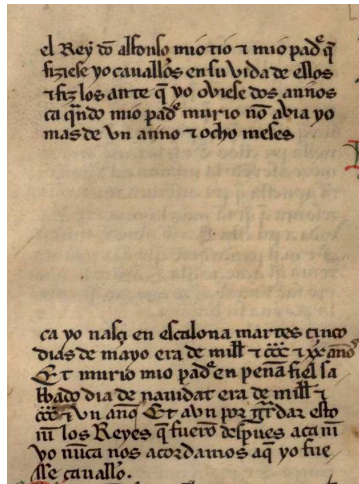 el Rey dõ alfonso mio tio ⁊ mio padᵉ q̃
fiziese yo cavallos̃ en su vida de ellos
⁊ fiz los ante q̃ yo oviese dos annos
ca qñdo mio padᵉ murio nõ avia yo
mas de vn anno ⁊ ocho meses
ca yo nasçi en escalona martes cinco
dias de mayo era de mill ⁊ ccc ⁊ xx años
Et murio mio padᵉ en peña fiel sa
bado dia de nauidat era de mill ⁊
ccc ⁊ vn año Et avn por gr̃dar esto
nĩ los Reyes q̃ fuerõ despues aca nĩ
yo nũca nos acordamos aq̃ yo fue
sse cauallo.